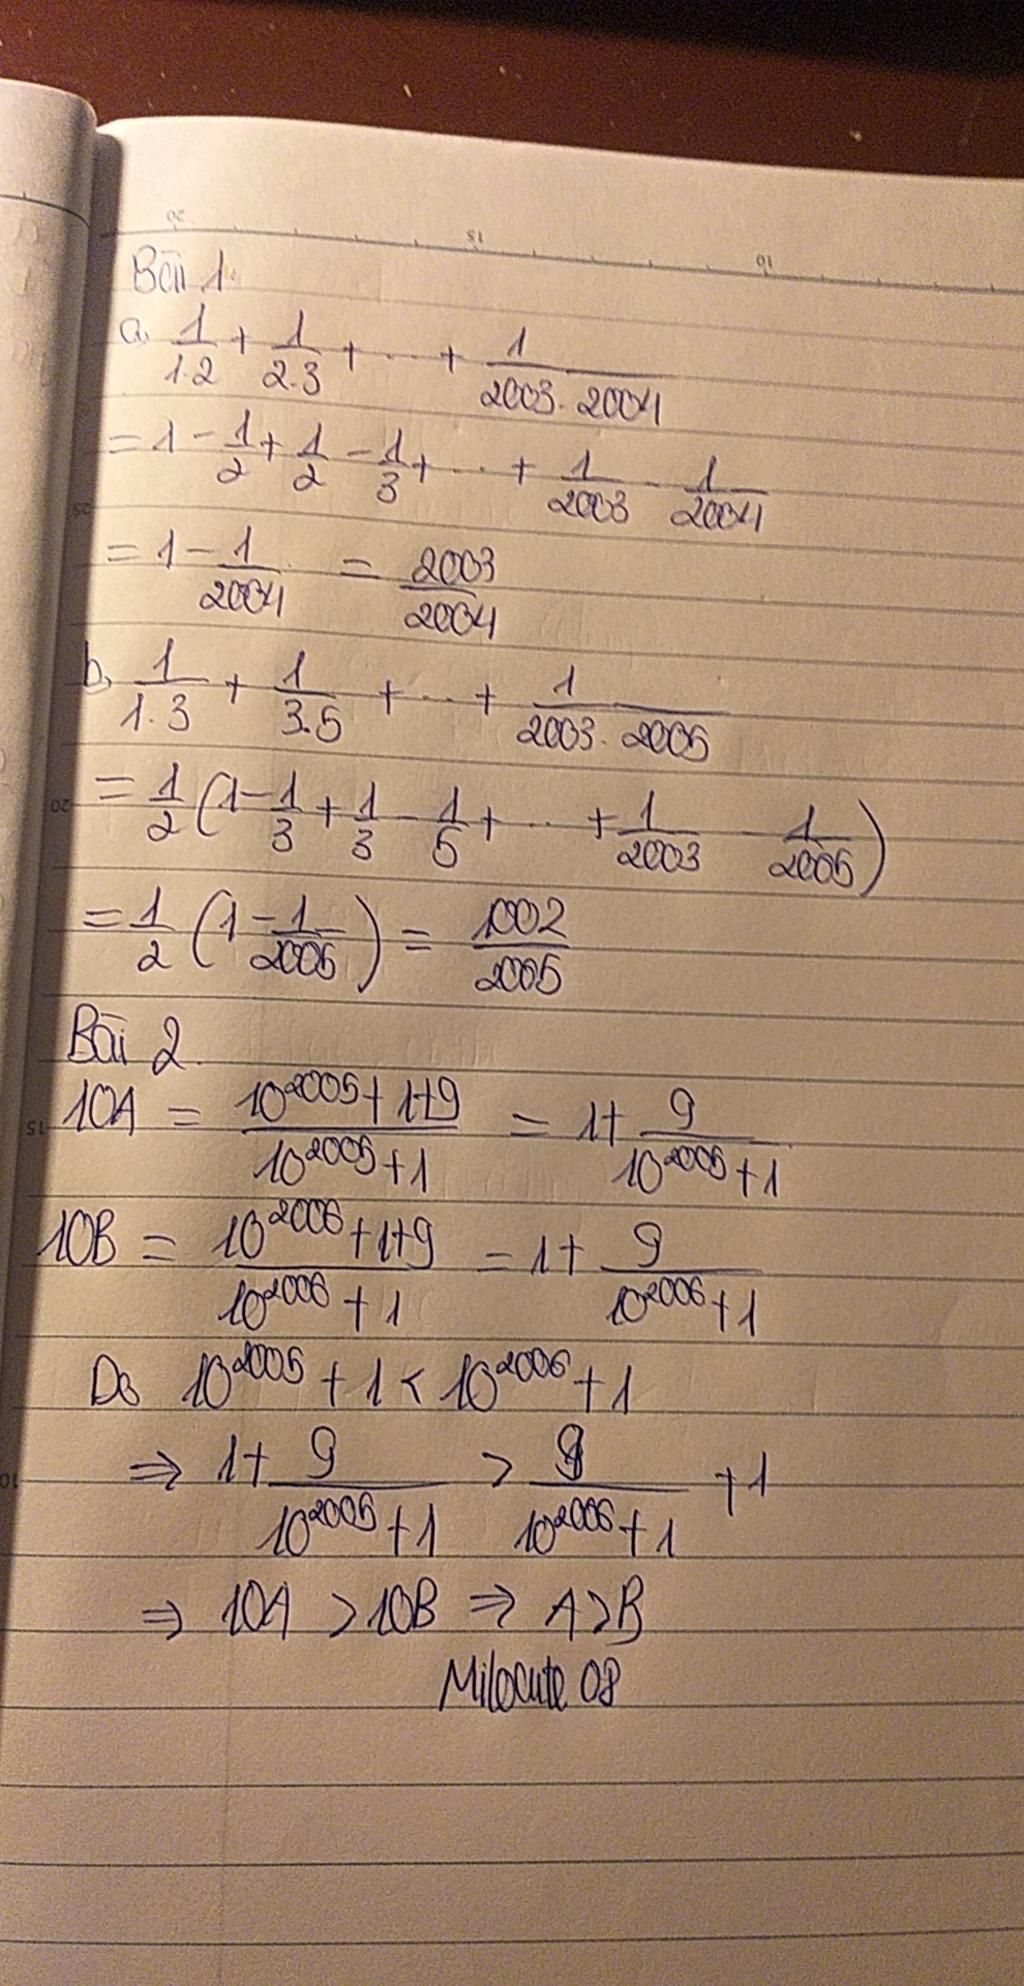 Bài 1
a, 1/1.2 + 1/2.3 + ... + 1/2003.2004
= 1 - 1/2 + 1/2 - 1/3 + ... + 1/2003 - 1/2004
= 1 - 1/2004 = 2003/2004
b, 1/1.3 + 1/3.5 + ... + 1/2003.2005
= 1/2 (1 - 1/3 + 1/3 - 1/5 + ... + 1/2003 - 1/2005)
= 1/2 (1 - 1/2005) = 1002/2005
Bài 2
10A = (10^2005 + 1 + 9)/(10^2005 + 1) = 1 + 9/(10^2005 + 1)
10B = (10^2006 + 1 + 9)/(10^2006 + 1) = 1 + 9/(10^2006 + 1)
Do 10^2005 + 1 < 10^2006 + 1
⇒ 1 + 9/(10^2005 + 1) > 9/(10^2006 + 1) + 1
⇒ 10A > 10B ⇒ A > B
Milocute 08